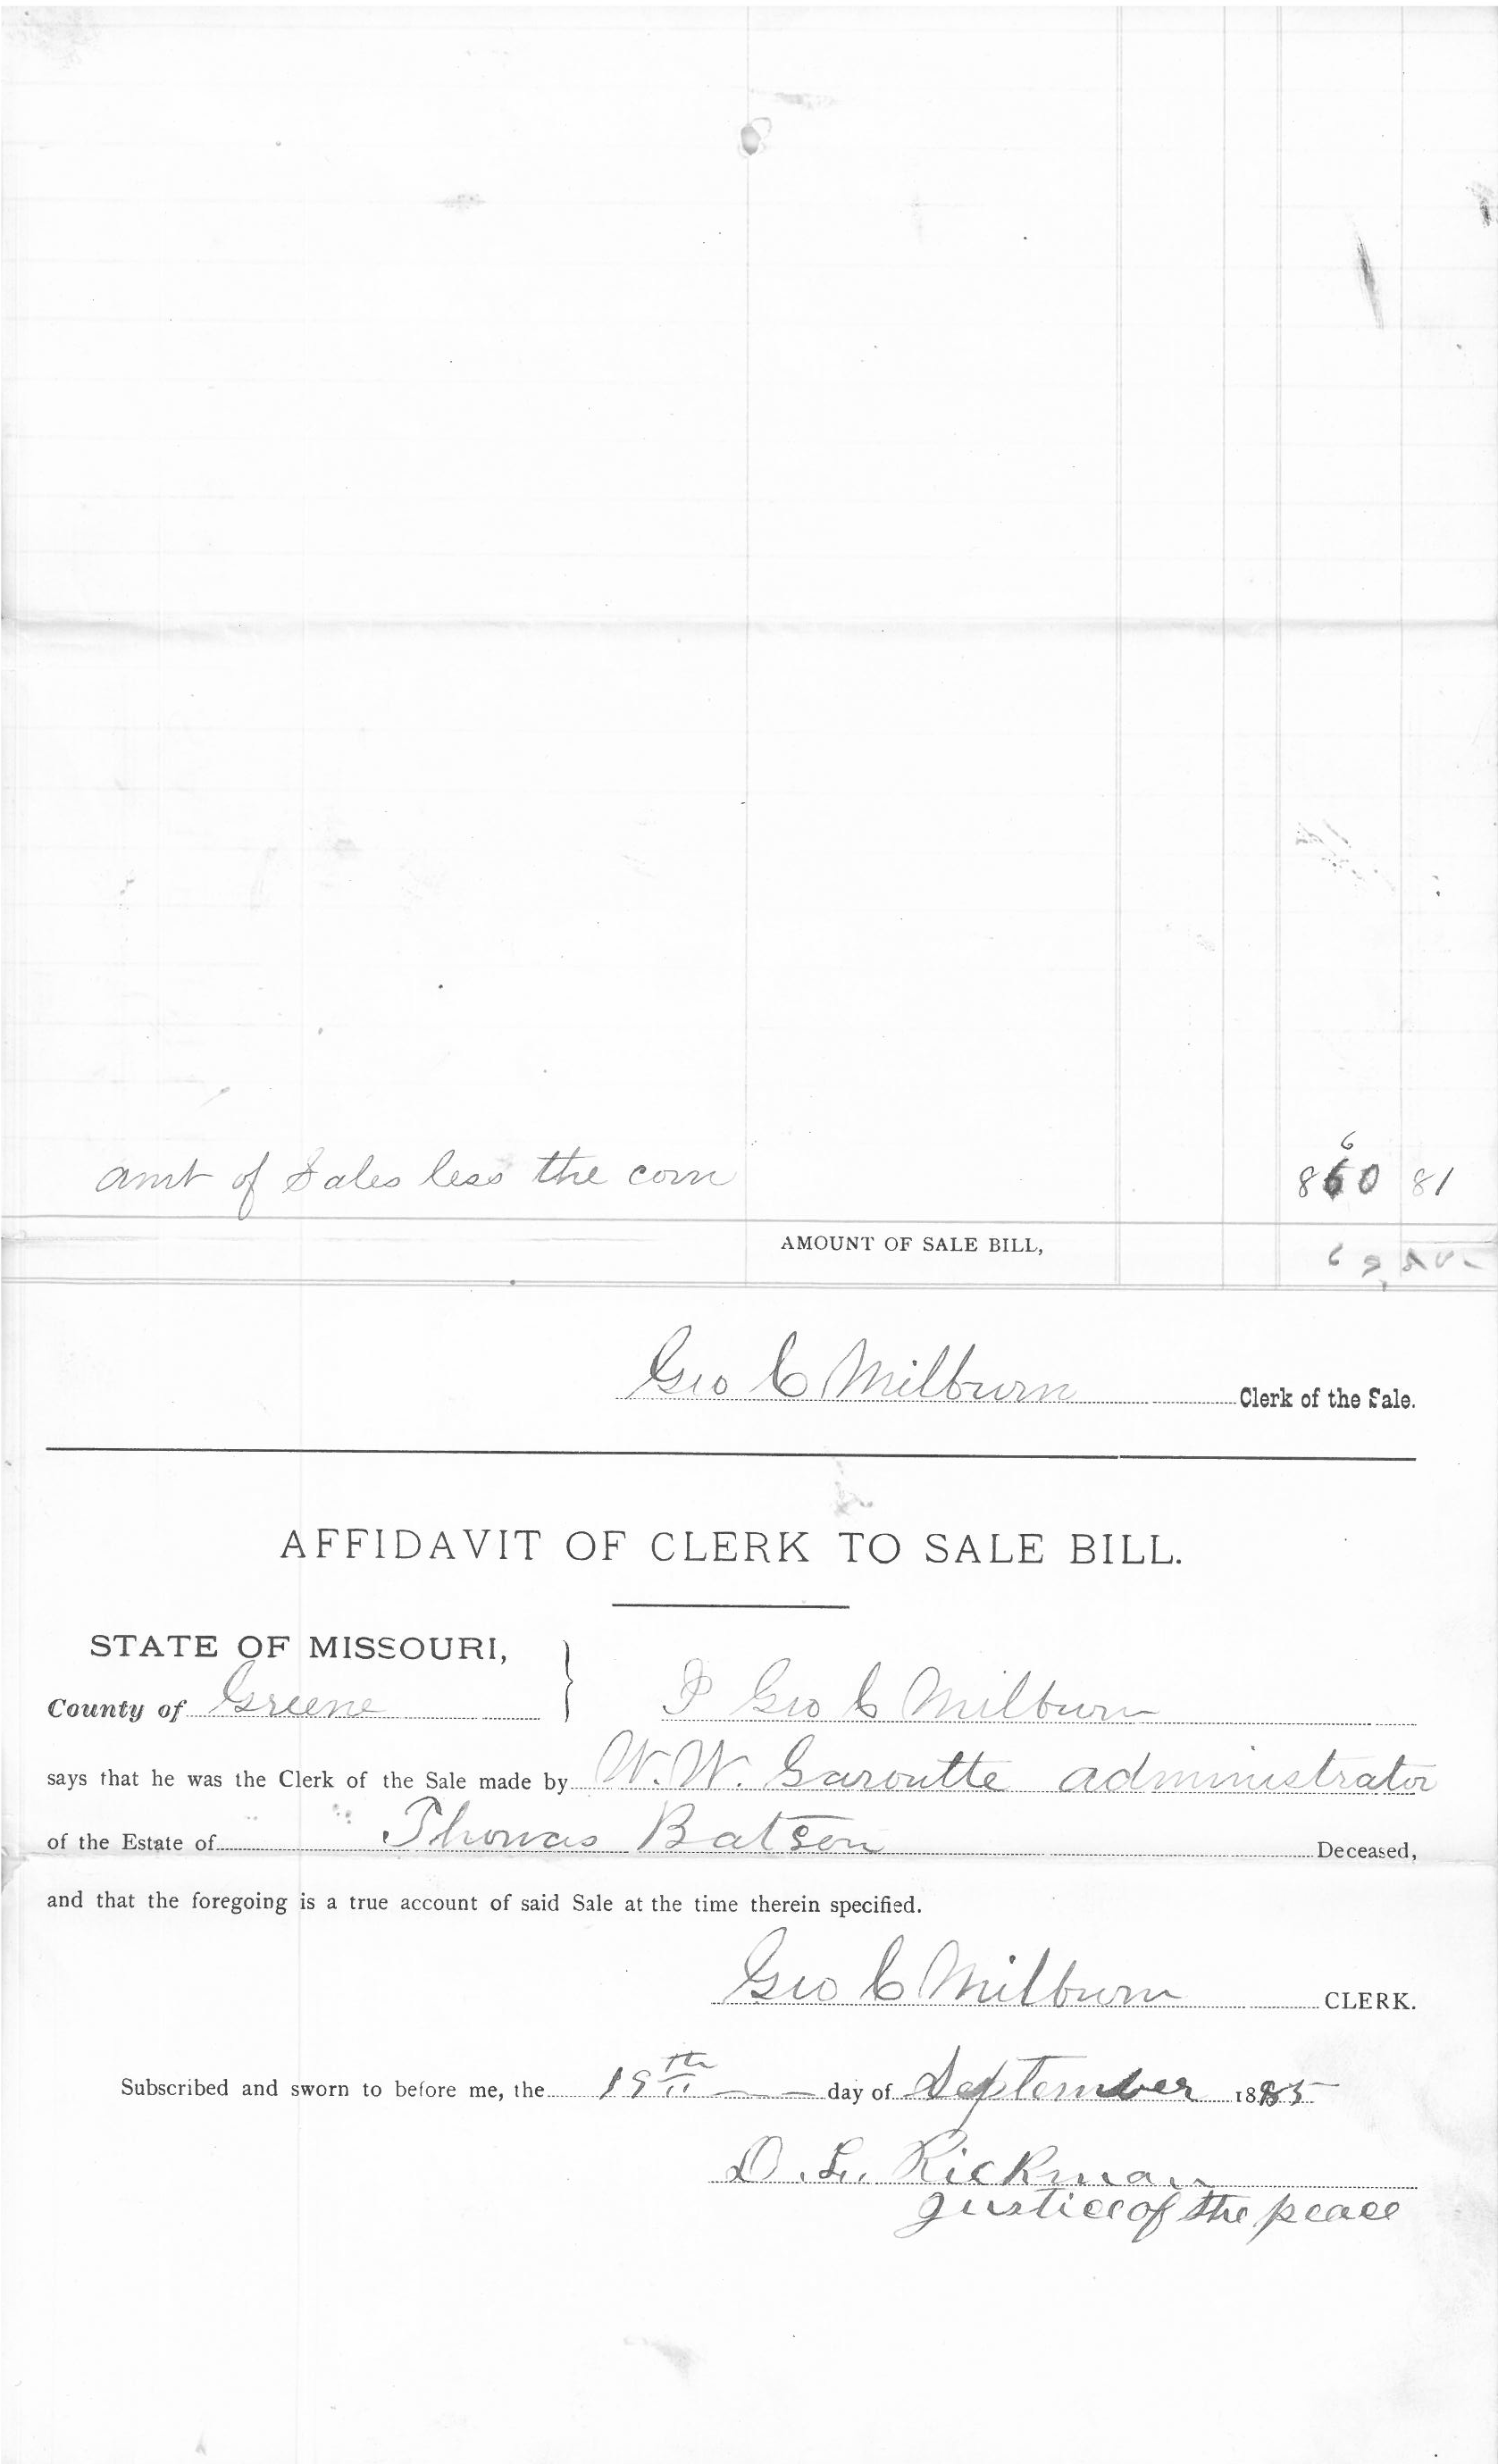 6
amt of Sales less the corn 860 81
AMOUNT OF SALE BILL,
Geo C Milburn Clerk of the Sale.
AFFIDAVIT OF CLERK TO SALE BILL.
STATE OF MISSOURI,
County of Greene } I Geo C Milburn
says that he was the Clerk of the Sale made by W. W. Garoutte administrator
of the Estate of Thomas Batson Deceased,
and that the foregoing is a true account of said Sale at the time therein specified.
Geo C Milburn CLERK.
Subscribed and sworn to before me, the 19th day of September 1885
D. L. Rickman
justice of the peace